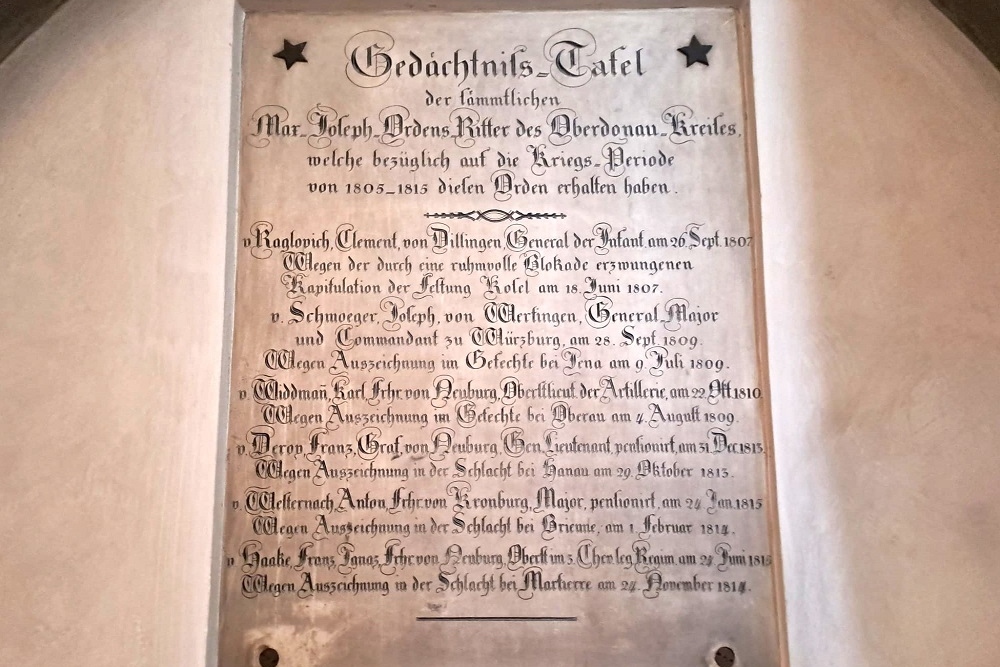 Gedächtniſs-Tafel
der ſämmtlichen
Max-Joſeph-Ordens-Ritter des Oberdonau-Kreiſes,
welche bezüglich auf die Kriegs-Periode
von 1805-1815 dieſen Orden erhalten haben.
v. Raglovich, Clement, von Dillingen, General der Infant. am 26. Sept. 1807
Wegen der durch eine ruhmvolle Blokade erzwungenen
Kapitulation der Feſtung Koſel am 18. Juni 1807.
v. Schmoeger, Joſeph, von Wertingen, General-Major
und Commandant zu Würzburg, am 28. Sept. 1809.
Wegen Auszeichnung im Gefechte bei Jena am 9. Juli 1809.
v. Widdmañ, Karl, Frhr. von Neuburg, Oberſtlieut. der Artillerie, am 22. Okt 1810.
Wegen Auszeichnung im Gefechte bei Oberau am 4. Auguſt 1809.
v. Deroy, Franz, Graf, von Neuburg, Gen. Lieutenant, penſionirt, am 31. Dec. 1813.
Wegen Auszeichnung in der Schlacht bei Hanau am 29. Oktober 1813.
v. Weſternach, Anton, Frhr. von Kronburg, Major, penſionirt, am 24. Jan. 1815
Wegen Auszeichnung in der Schlacht bei Brienne, am 1. Februar 1814.
v. Haake, Franz, Ignaz, Frhr. von Neuburg, Oberſt im 3. Chev. leg. Regim. am 24. Juni 1815
Wegen Auszeichnung in der Schlacht bei am 24. November 1814.